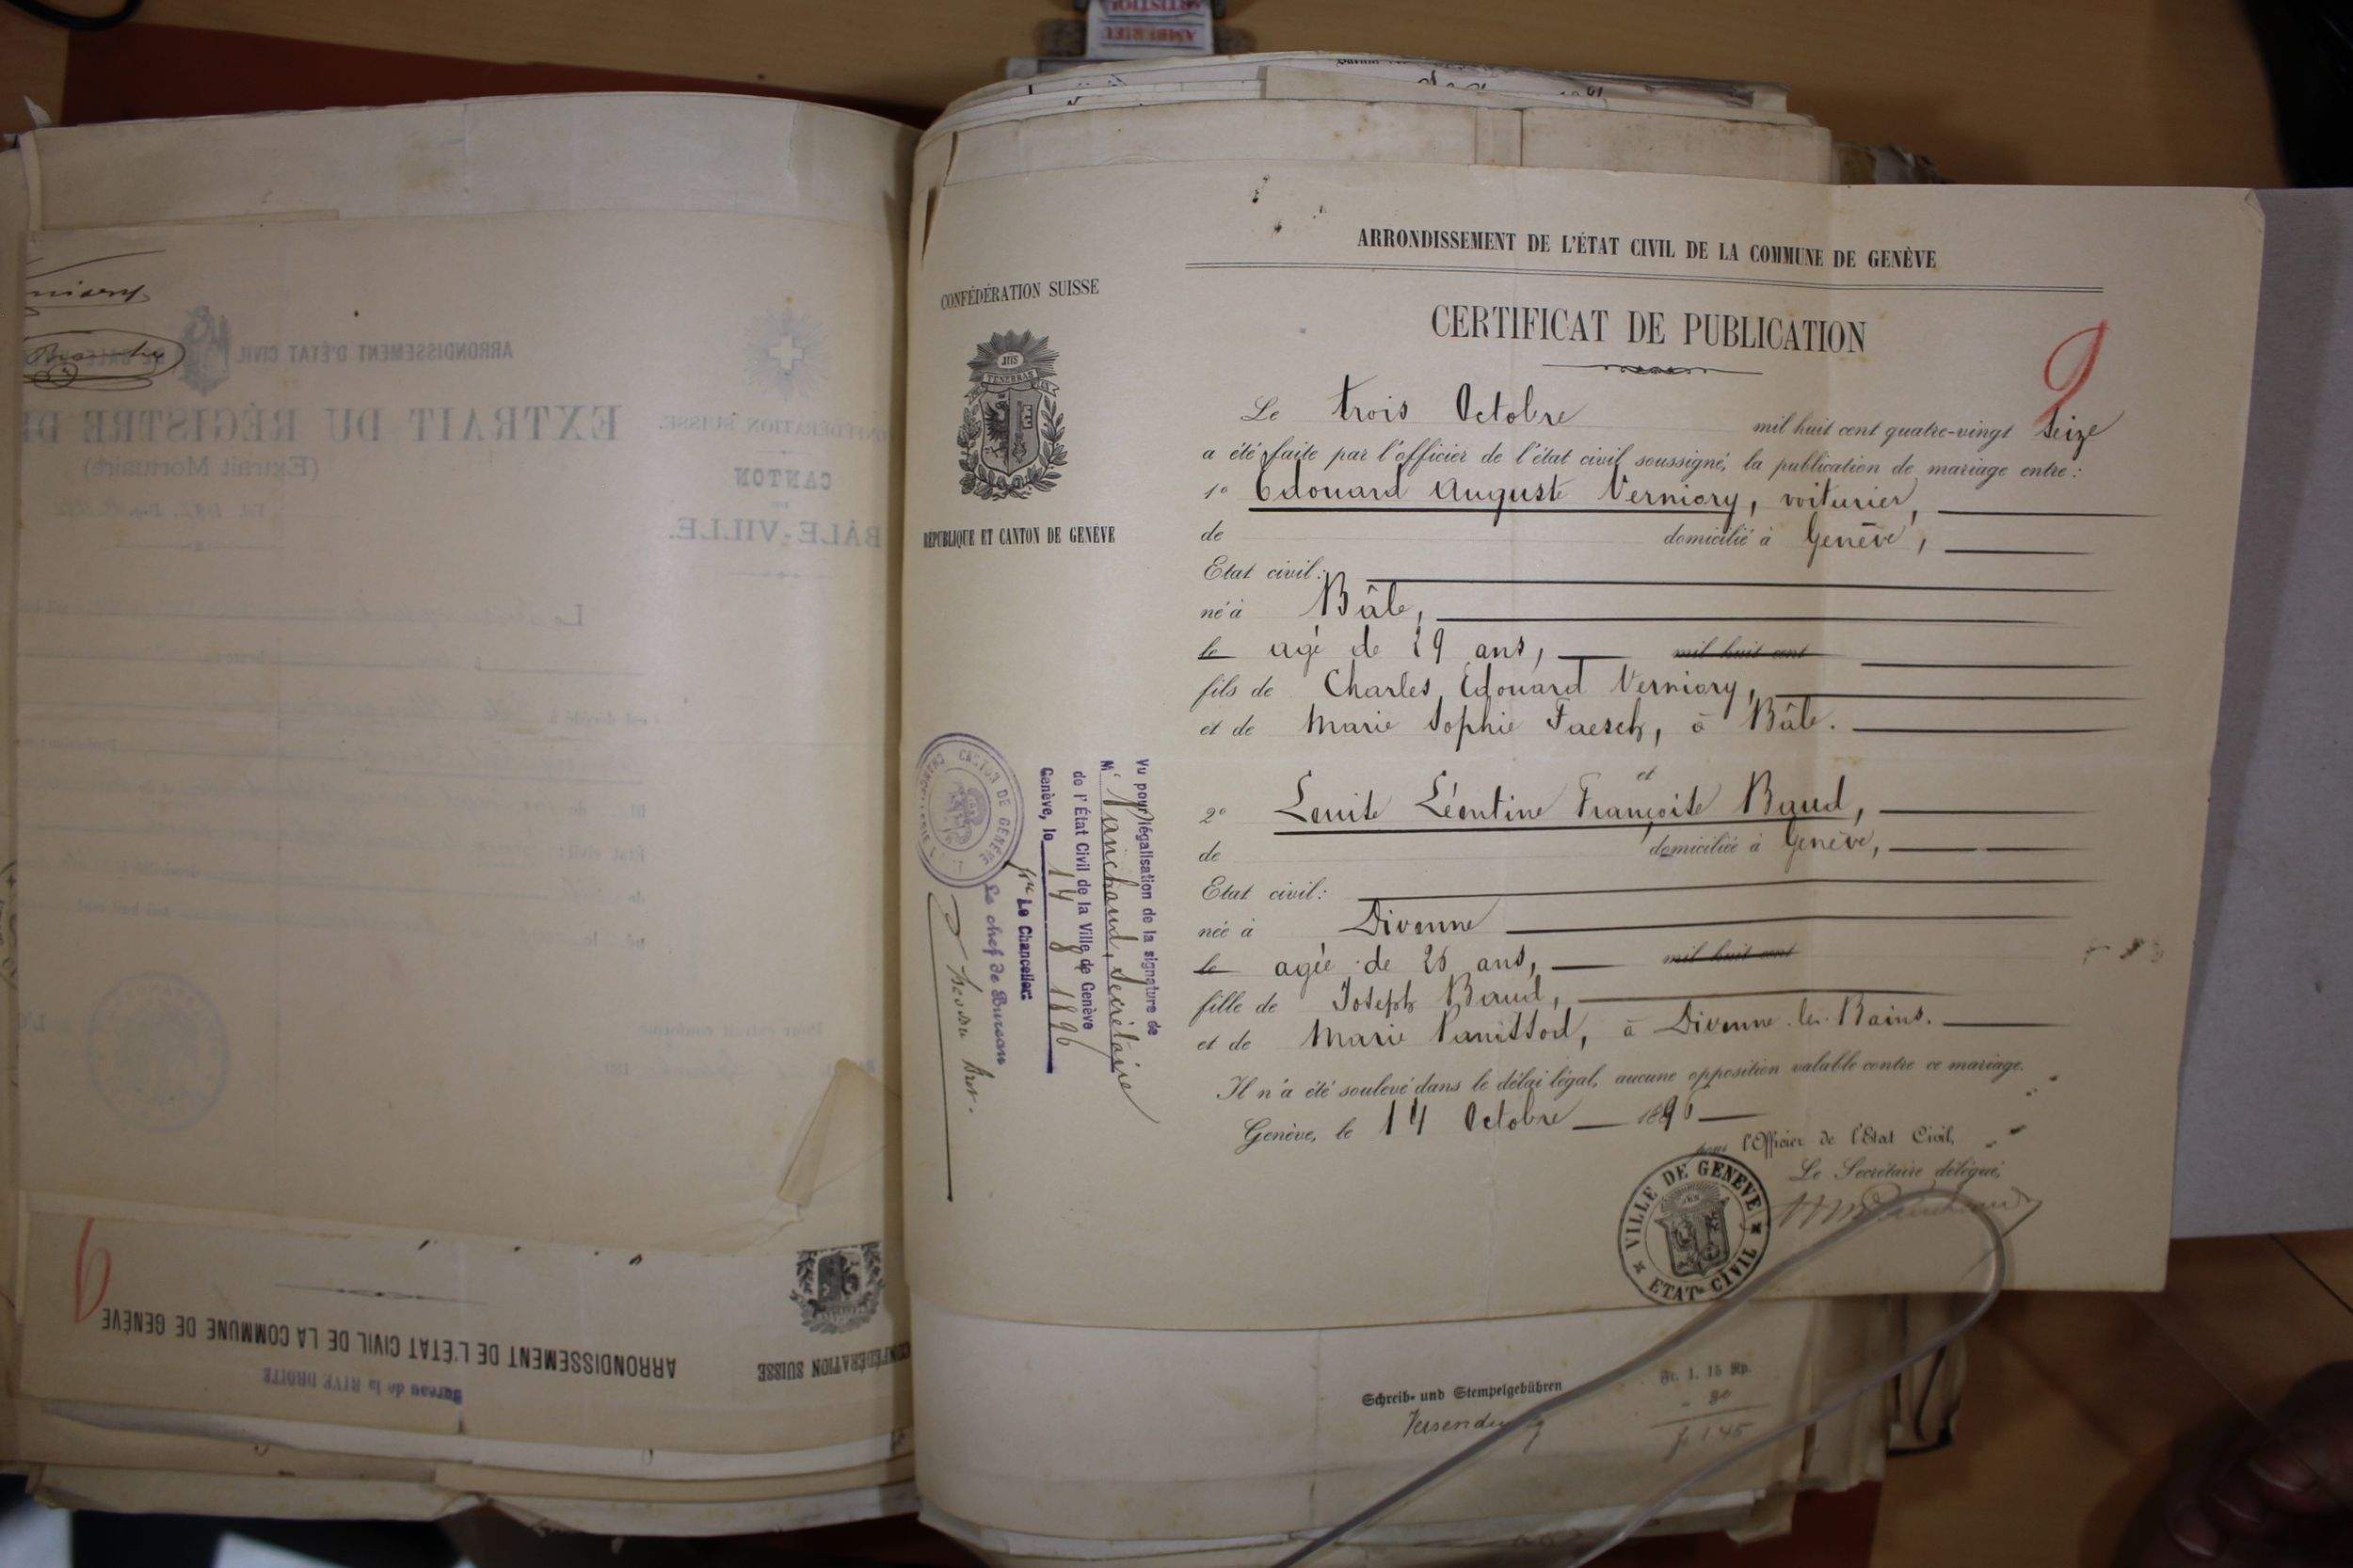 ARRONDISSEMENT DE L'ÉTAT CIVIL DE LA COMMUNE DE GENÈVE
CONFÉDÉRATION SUISSE
RÉPUBLIQUE ET CANTON DE GENÈVE
CERTIFICAT DE PUBLICATION
9
Le trois Octobre mil huit cent quatre-vingt seize
a été faite par l'officier de l'état civil soussigné, la publication de mariage entre:
1º Edouard Auguste Verniory, voiturier,
de domicilié à Genève,
Etat civil:
né à Bâle,
le agé de 29 ans, mil huit cent
fils de Charles Edouard Verniory,
et de Marie Sophie Faesch, à Bâle.
et
2º Louise Léontine Françoise Baud,
de domiciliée à Genève,
Etat civil:
née à Divonne
le agée de 26 ans, mil huit cent
fille de Joseph Baud,
et de Marie Panissod, à Divonne-les-Bains.
Il n'a été soulevé dans le délai légal, aucune opposition valable contre ce mariage.
Genève, le 14 Octobre 1896
pour l'Officier de l'Etat Civil,
Le Secrétaire délégué,
VILLE DE GENEVE
ETAT CIVIL
Vu pour légalisation de la signature de
Mr Mainchaud, Secrétaire
de l'État Civil de la Ville de Genève
Genève, le 14 8 1896
Le Chancelier:
Le chef de Bureau
CANTON DE GENÈVE
Schreib- und Stempelgebühren Fr. 1. 15 Rp.
Versendung - 30
fr 1 45
ARRONDISSEMENT D'ÉTAT CIVIL
EXTRAIT DU REGISTRE
(Extrait Mortuaire)
CONFÉDÉRATION SUISSE.
CANTON
BÂLE-VILLE.
CONFÉDÉRATION SUISSE
ARRONDISSEMENT DE L'ÉTAT CIVIL DE LA COMMUNE DE GENÈVE
Bureau de la RIVE DROITE